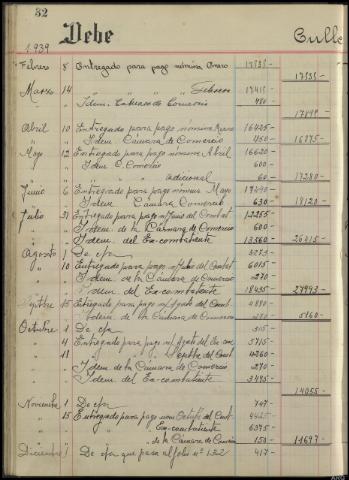 32
Debe
Culle
1.939
Febrero 8 Entregado para pago nómina Enero 17535-
17535-
Marzo 14 " " " " Febrero 17415-
" " Idem. Cámara de Comercio 480-
Abril 10 Entregado para pago nómina Marzo 16425-
" " Idem Cámara de Comercio 450- 16875-
Mayo 12 Entregado para pago nómina Abril 16620-
" " Idem C. Comercio 600-
" " " adicional 60- 17280-
Junio 6 Entregado para pago nómina Mayo 17490-
" " Idem Cámara Comercio 630- 18120-
Julio Entregado para pago n/Junio del Combat 12255-
" " Idem de la Cámara de Comercio 600-
" " Idem del Ex-combatiente 13560- 26415-
Agosto 1 De cfa 3273-
" 10 Entregado para pago n/Julio del Combat 6015-
" " Idem de la Cámara de Comercio 270-
" " Idem del Ex-combatiente 18435- 27993-
Septbre 15 Entregado para pago n/Agsto del Comb. 4890-
" " Idem de la Cámara de Comercio 270- 5160-
Octubre 1 De cfa 315-
" 4 Entregado para pago n/Agsto del Ex com 5715-
" 11 " " " " Septbre del Comt 4260-
Idem de la Cámara de Comercio 270-
Idem del Ex-combatiente 3495-
14055-
Noviembre 1 De cfa 747-
" 15 Entregado para pago nom Octubre del Comt 4425-
" " " Ex-combatiente 6375-
" " " de la Cámara de Comercio 150- 11697-
Diciembre 1 De cfa que pasa al folio nº 132 417-